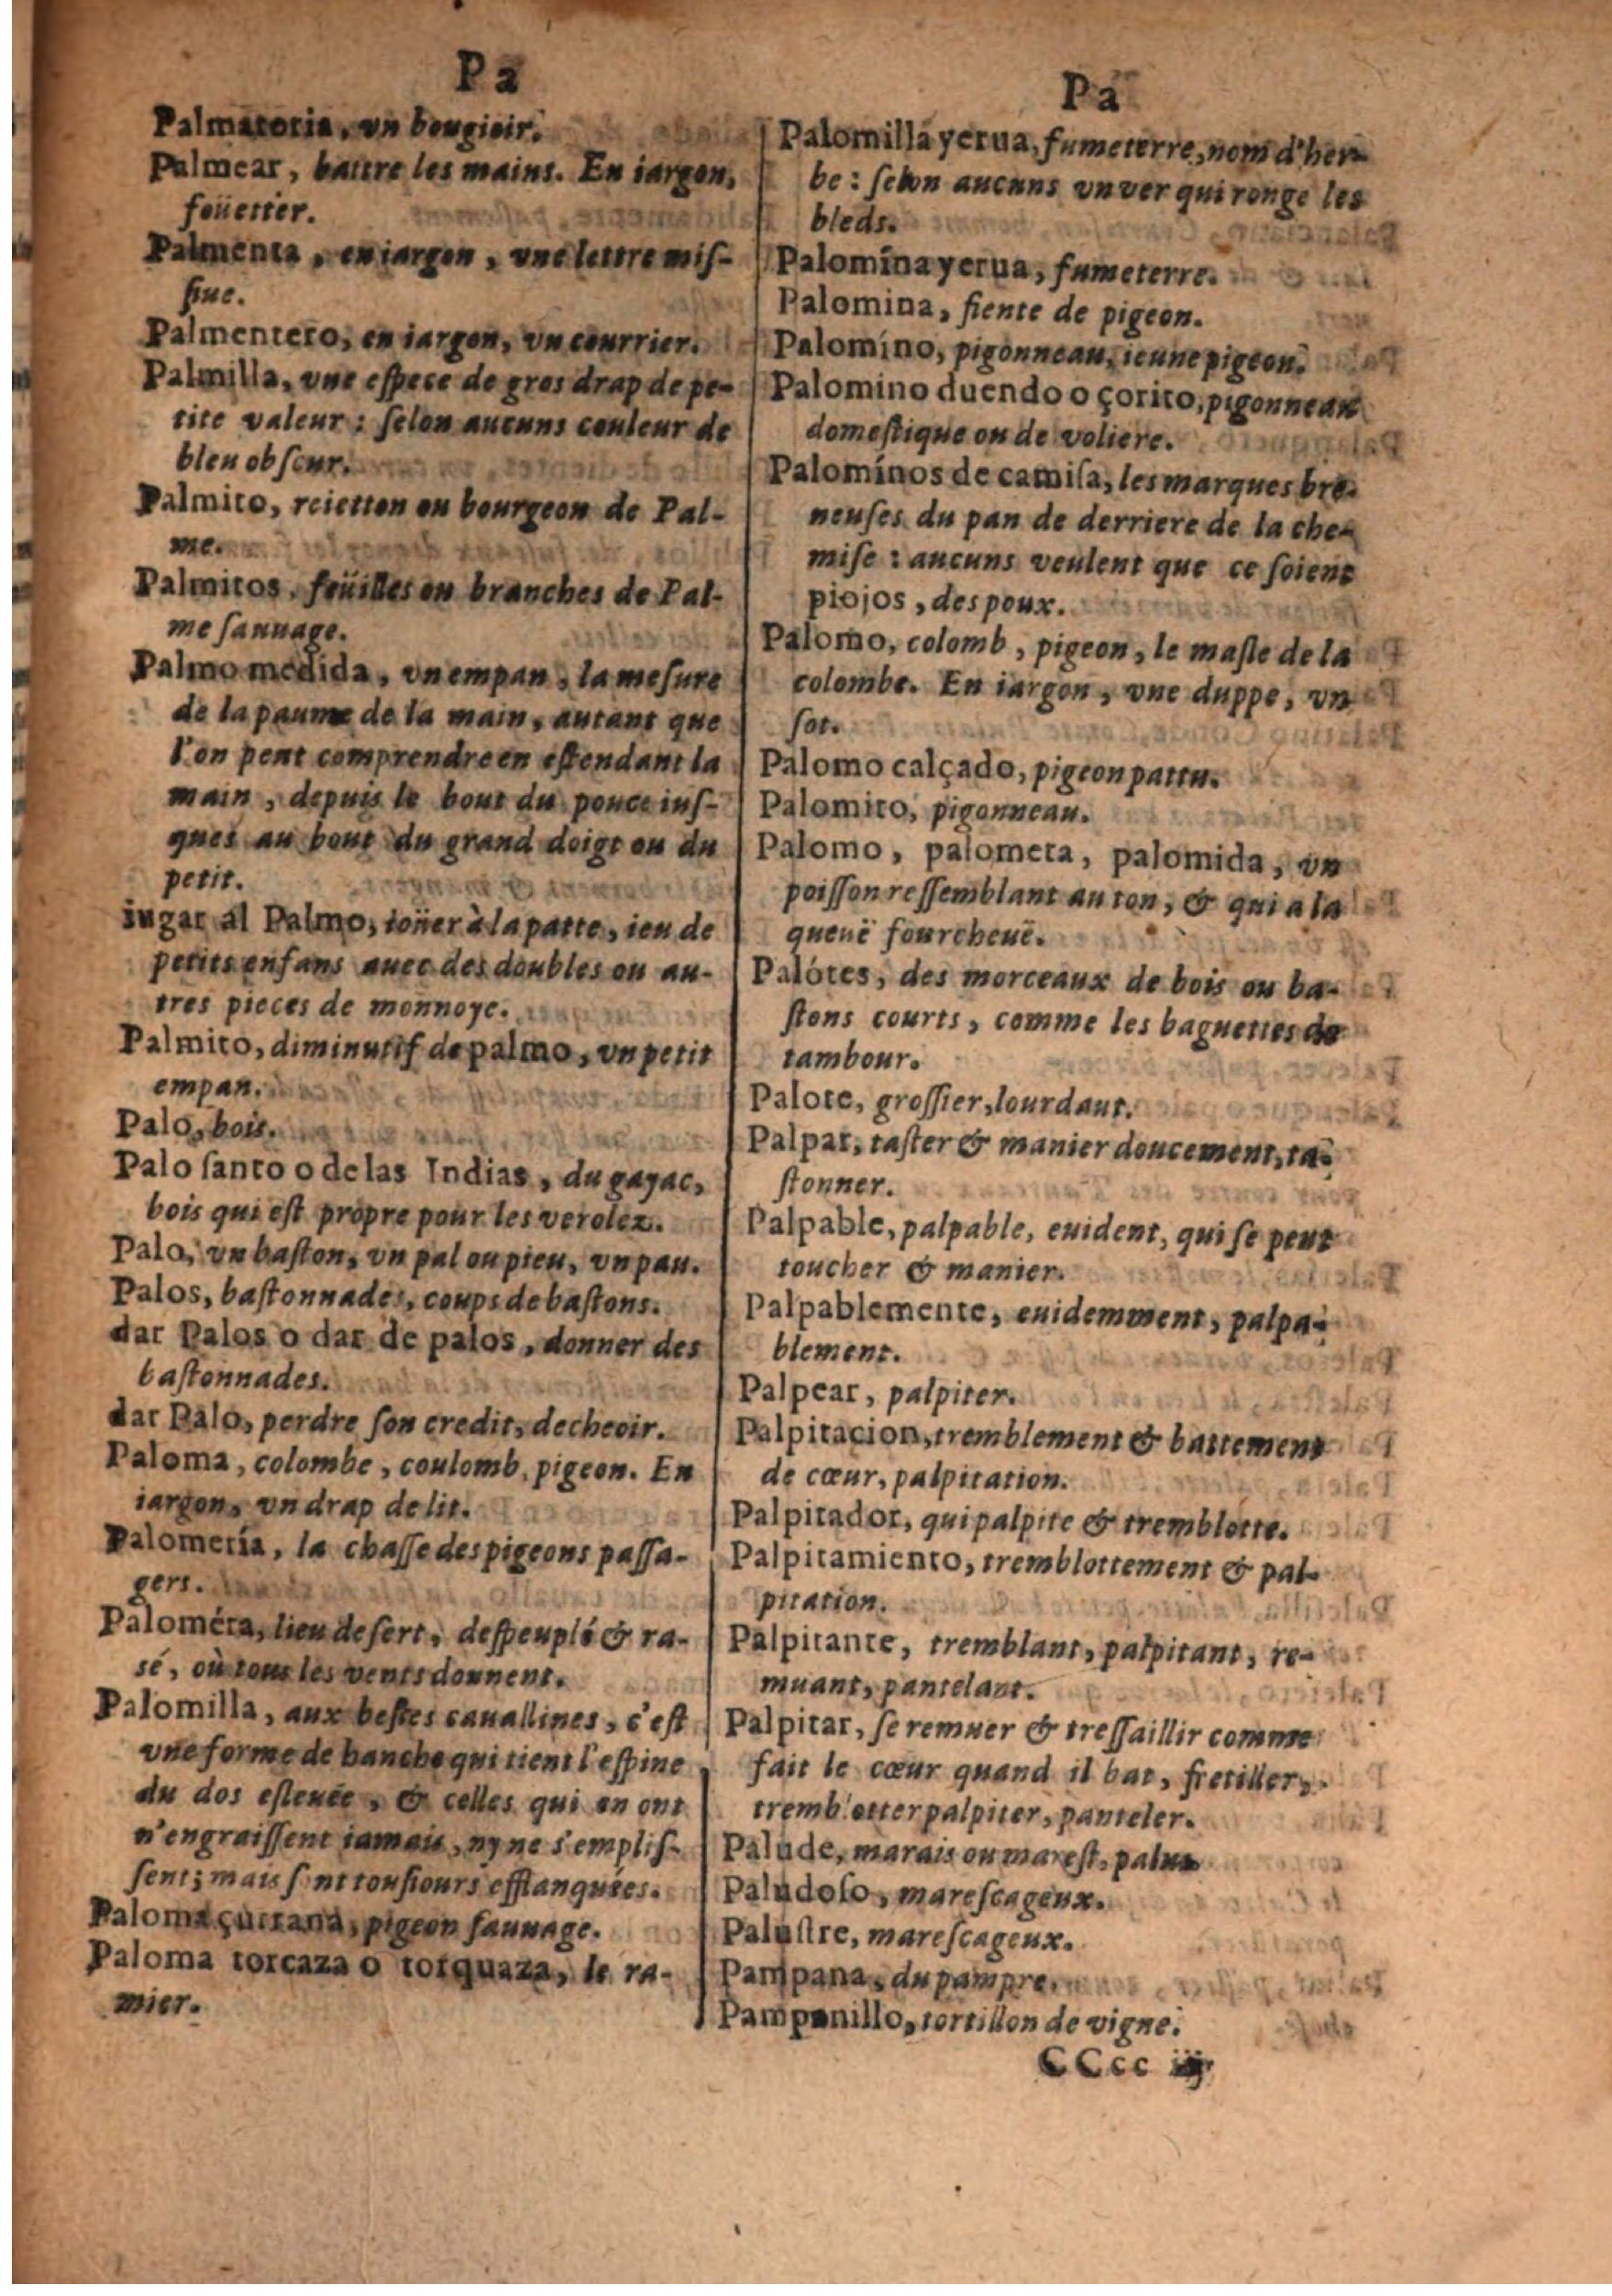 Pa
Palmatoria, vn bougieir.
Palmear, battre les mains. En iargon,
foüetter.
Palmenta, en iargon, vne lettre miſ-
ſiue.
Palmentero, en iargon, vn courrier.
Palmilla, vne eſpece de gros drap de pe-
tite valeur : ſelon aucuns couleur de
bleu obſcur.
Palmito, reietton ou bourgeon de Pal-
me.
Palmitos, feüilles ou branches de Pal-
me ſauuage.
Palmo medida, vn empan, la meſure
de la paume de la main, autant que
l'on peut comprendre en eſtendant la
main, depuis le bout du pouce iuſ-
ques au bout du grand doigt ou du
petit.
iugar al Palmo, ioüer à la patte, ieu de
petits enfans auec des doubles ou au-
tres pieces de monnoye.
Palmito, diminutif de palmo, vn petit
empan.
Palo, bois.
Palo ſanto o de las Indias, du gayac,
bois qui eſt propre pour les verolez.
Palo, vn baſton, vn pal ou pieu, vn pau.
Palos, baſtonnades, coups de baſtons.
dar Palos o dar de palos, donner des
baſtonnades.
dar Palo, perdre ſon credit, decheoir.
Paloma, colombe, coulomb, pigeon. En
iargon, vn drap de lit.
Palomería, la chaſſe des pigeons paſſa-
gers.
Paloméra, lieu deſert, deſpeuplé & ra-
sé, où tous les vents donnent.
Palomilla, aux beſtes cauallines, c'eſt
vne forme de hanche qui tient l'eſpine
du dos eſleuée, & celles qui en ont
n'engraiſſent iamais, ny ne s'empliſ-
ſent; mais ſont touſiours efflanquées.
Paloma çurrana, pigeon ſauuage.
Paloma torcaza o torquaza, le ra-
mier.
Pa
Palomilla yerua, fumeterre, nom d'her-
be : ſelon aucuns vn ver qui ronge les
bleds.
Palomína yerua, fumeterre.
Palomina, fiente de pigeon.
Palomíno, pigonneau, ieune pigeon.
Palomino duendo o çorito, pigonneau
domeſtique ou de voliere.
Palomínos de camiſa, les marques bre-
neuſes du pan de derriere de la che-
miſe : aucuns veulent que ce ſoient
piojos, des poux.
Palomo, colomb, pigeon, le maſle de la
colombe. En iargon, vne duppe, vn
ſot.
Palomo calçado, pigeon pattu.
Palomito, pigonneau.
Palomo, palometa, palomida, vn
poiſſon reſſemblant au ton, & qui a la
queuë fourcheuë.
Palótes, des morceaux de bois ou ba-
ſtons courts, comme les baguettes de
tambour.
Palote, groſſier, lourdaut.
Palpar, taſter & manier doucement, ta-
ſtonner.
Palpable, palpable, euident, qui ſe peut
toucher & manier.
Palpablemente, euidemment, palpa-
blement.
Palpear, palpiter.
Palpitacion, tremblement & battement
de cœur, palpitation.
Palpitador, qui palpite & tremblotte.
Palpitamiento, tremblottement & pal-
pitation.
Palpitante, tremblant, palpitant, re-
muant, pantelant.
Palpitar, ſe remuer & treſſaillir comme
fait le cœur quand il bat, fretiller,
tremblotter palpiter, panteler.
Palude, marais ou mareſt, palus
Paludoſo, mareſcageux.
Paluſtre, mareſcageux.
Pampana, du pampre.
Pampanillo, tortillon de vigne.
CCcc iij